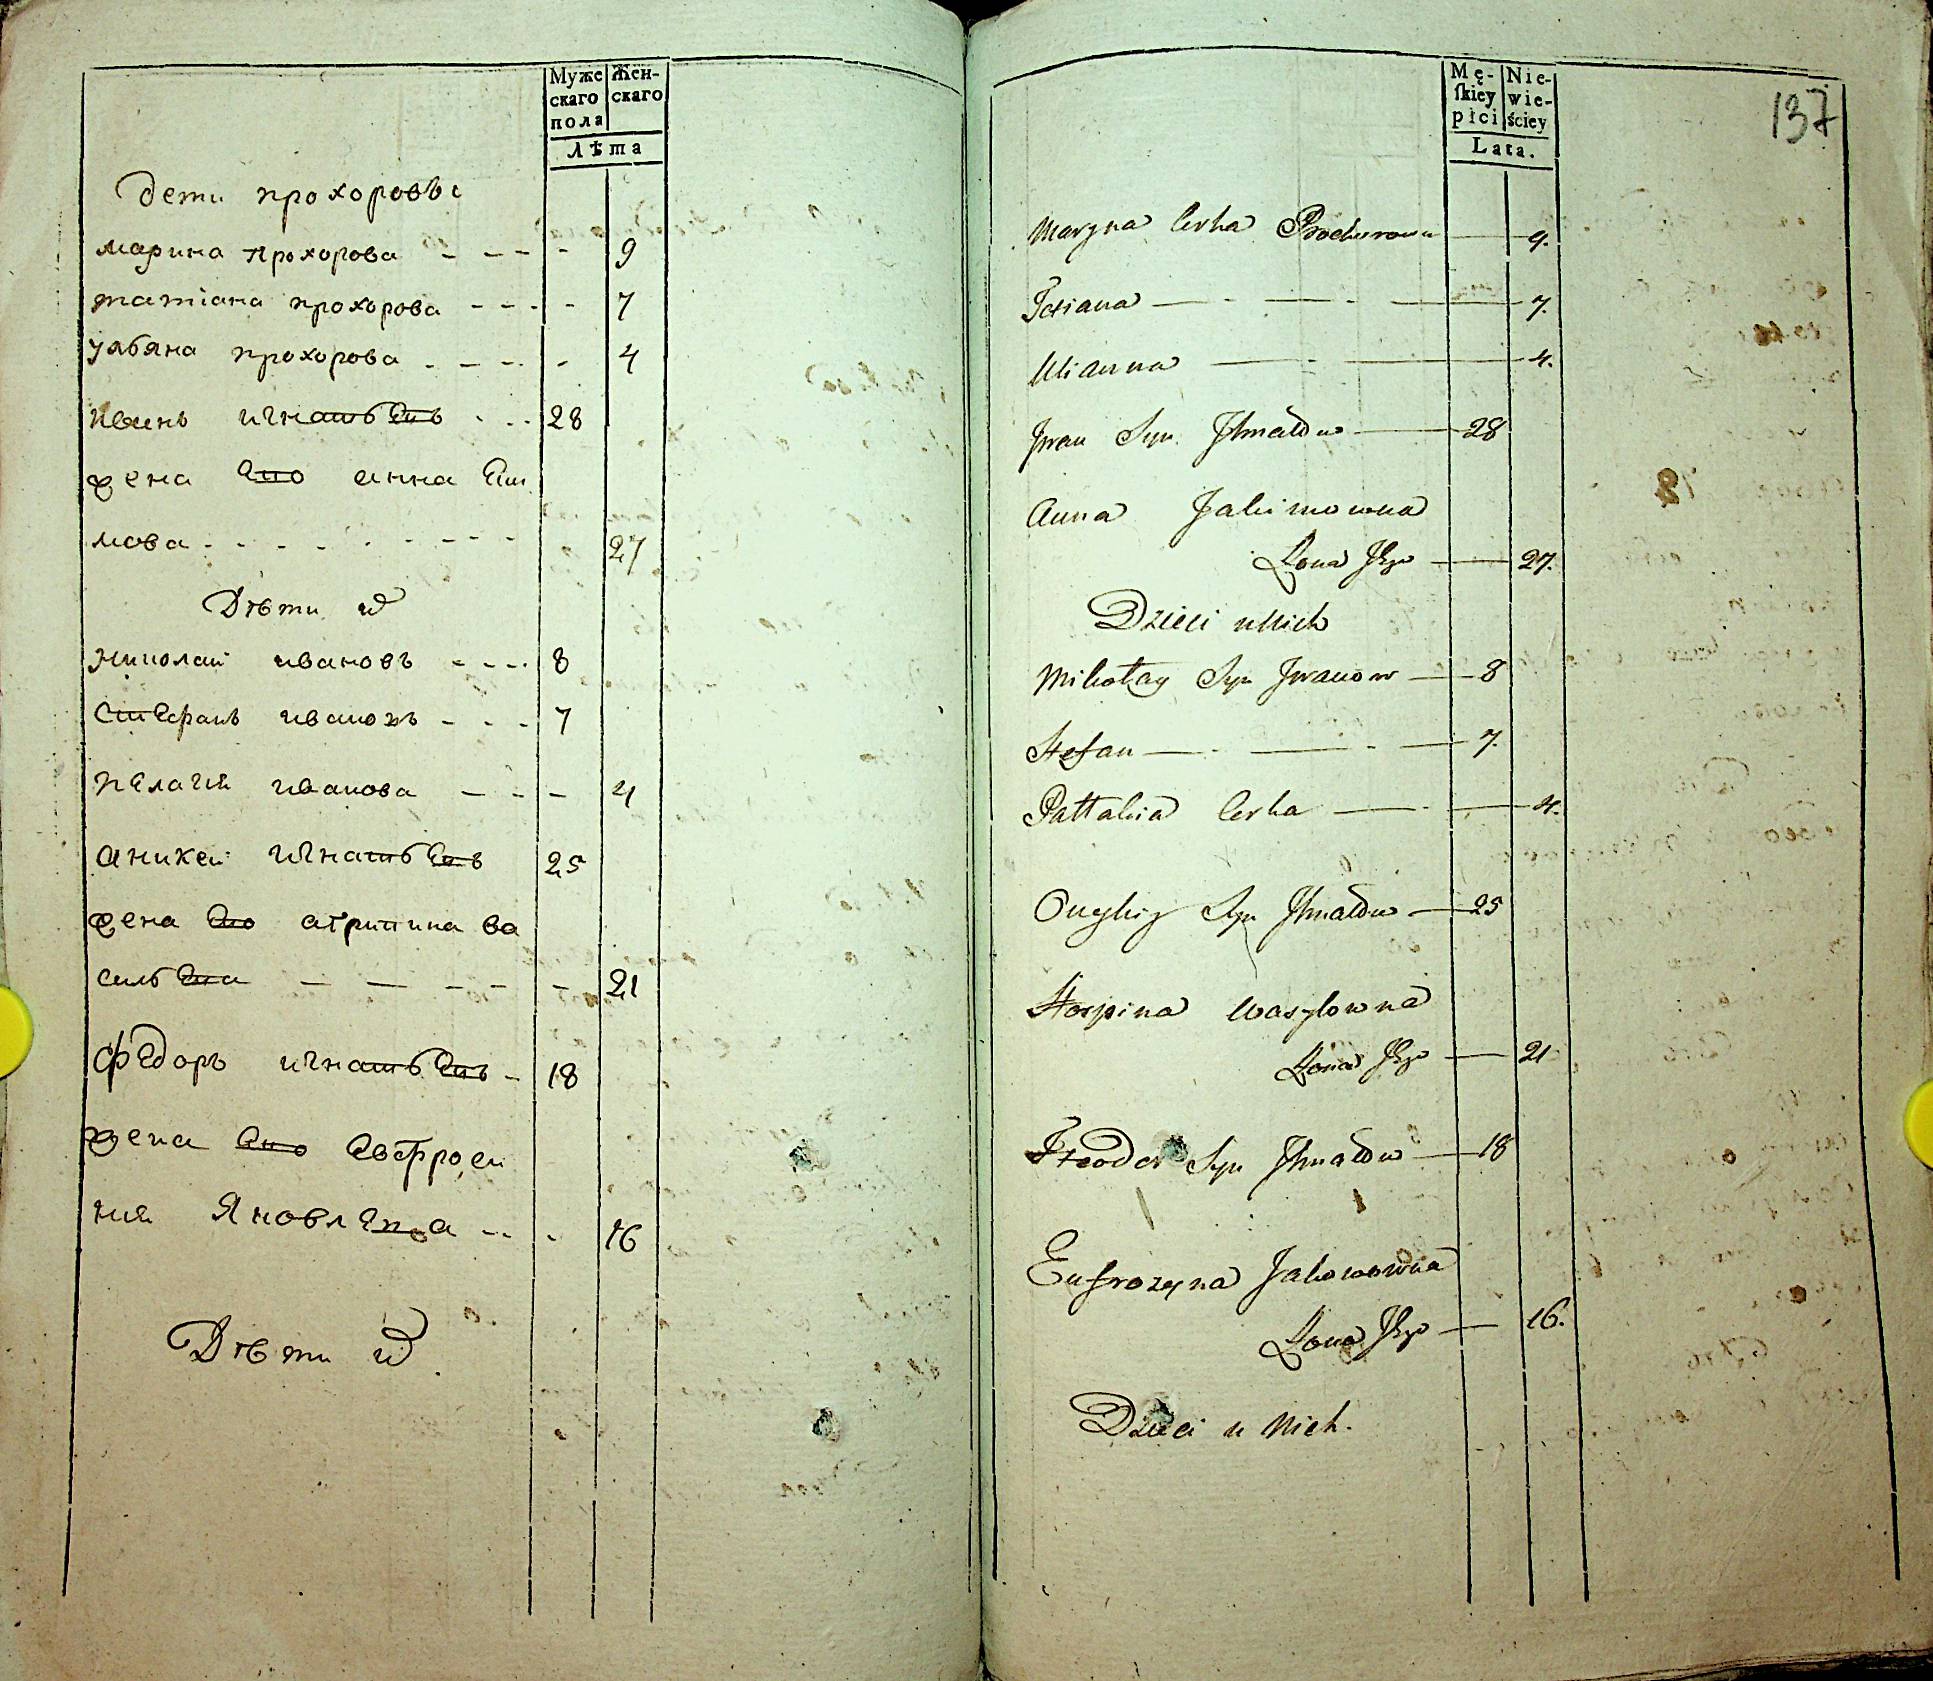 Муже
скаго
пола
Жен-
скаго
Лѣта
Дети прохоровы
марина прохорова - - - - 9
татіана прохорова - - - - 7
ульяна прохорова - - - - 4
иванъ игнатьевъ - - - 28
жена ево анна Еки
мова - - - - - - - - - 27
Дѣти
николай ивановъ - - - 8
Стефанъ ивановъ - - - 7
пелагия иванова - - - 4
аникей игнатьевъ 25
жена ево агрипина ва
сильева - - - - - 21
Федоръ игнатьевъ - 18
жена ево Евфроси
ния Яковлева - - - 16
Дѣти
137
Mę-
skiey
płci
Nie-
wie-
ściey
Lata.
Maryna Corka Prochorowa 9.
Tatiana 7.
Ulianna 4.
Jwan Syn 28
Anna Jakimowna
Żona Jego 27.
Dzieci u Nich
Mikołay Syn Jwanow 8
Stefan 7.
Pałłahia Corka 4.
Syn 25
Horpina Wasylowna
Żona Jego 21
Fteodor Syn 18
Eufrozyna Jakowowna
Żona Jego 16.
Dzieci u Nich.